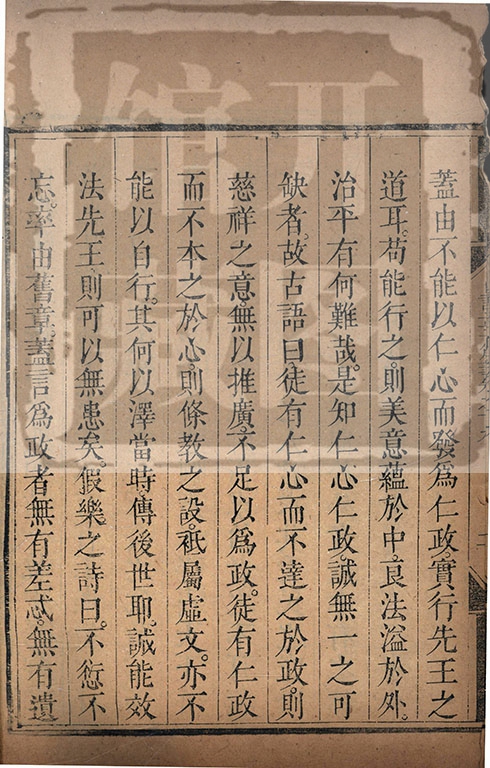 蓋由不能以仁心而發爲仁政。實行先王之
道耳。苟能行之。則美意蘊於中。良法溢於外。
治平有何難哉。是知仁心仁政。誠無一之可
缺者。故古語曰。徒有仁心而不達之於政。則
慈祥之意。無以推廣。不足以爲政。徒有仁政
而不本之於心。則條教之設。祇屬虛文。亦不
能以自行。其何以澤當時。傳後世耶。誠能效
法先王。則可以無患矣。假樂之詩曰。不愆不
忘。率由舊章。蓋言爲政者無有差忒。無有遺